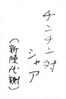 チンチン対
シャア
(新陳代謝)